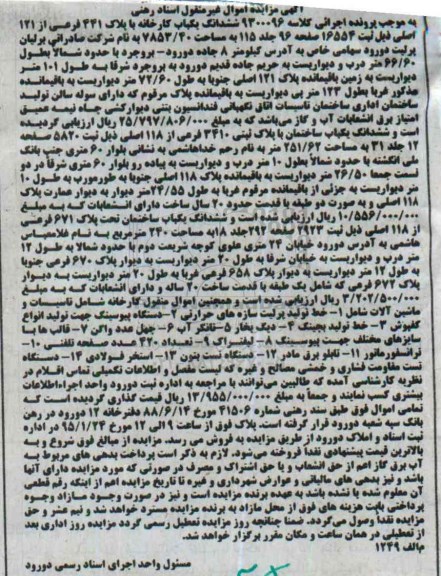 آگهی مزایده اموال غیرمنقول اسناد رهنی
به موجب پرونده اجرائی کلاسه ۹۳۰۰۰۹۶ ششدانگ یکباب کارخانه با پلاک ۴۴۱ فرعی از ۱۲۱
اصلی ذیل ثبت ۱۶۵۵۴ صفحه ۹۶ جلد ۱۱۵ به مساحت ۷۸۵۳/۴۰ به نام شرکت صادراتی پرلیان
پرلیت دورود سهامی خاص به آدرس کیلومتر ۸ جاده دورود - بروجرد با حدود شمالا بطول
۶۶/۶۰ متر درب و دیواریست به حریم جاده قدیم دورود به بروجرد شرقا به طول ۱۰۱ متر
دیواریست به زمین باقیمانده پلاک ۱۲۱ اصلی جنوبا به طول ۷۳/۶۰ متر دیواریست به باقیمانده
مذکور غربا بطول ۱۲۳ متر پی دیواریست به باقیمانده پلاک مرقوم که دارای سوله سالن تولید
ساختمان اداری ساختمان تاسیسات اتاق نگهبانی فنداسیون بتنی دیوارکشی چاه نیمه عمیق
امتیاز برق انشعابات آب و گاز می‌باشد که به مبلغ ۲۵/۷۹۷/۸۰۶/۰۰۰ ریال ارزیابی گردیده
است و ششدانگ یکباب ساختمان با پلاک ثبتی ۳۴۱۰ فرعی از ۱۱۸ اصلی ذیل ثبت ۵۸۲۰ صفحه
۱۲ جلد ۳۱ به مساحت ۲۵۱/۶۲ متر به نام رحم خداهاشمی به نشانی بلوار ۶۰ متری جنب بانک
ملی انگشته با حدود شمالا بطول ۱۰ متر درب و دیواریست به پیاده رو بلوار ۶۰ متری شرقا در دو
قسمت جمعا ۲۶/۵۰ متر دیواریست به باقیمانده پلاک ۱۱۸ اصلی جنوبا به طور مورب به طول ۱۰
متر دیواریست به جزئی از باقیمانده مرقوم غربا به طول ۲۴/۵۵ متر دیوار به دیوار عمارت پلاک
۱۱۸ اصلی و به صورت دو طبقه با قدمت حدود ۲۰ سال ساخت دارای انشعابات که به مبلغ
۱۰/۵۵۶/۰۰۰/۰۰۰ ریال ارزیابی شده است و ششدانگ یکباب ساختمان تحت پلاک ۶۷۱ فرعی
از ۱۱۸ اصلی ذیل ثبت ۲۹۲۳ صفحه ۲۹۲ جلد ۱۸ به مساحت ۲۴۰ متر مربع به نام غلامعباس
هاشمی به آدرس دورود خیابان ۲۴ متری علوی کوچه شریعت دوم با حدود شمالا به طول ۱۲
متر درب و دیواریست به خیابان شرقا به طول ۲۰ متر دیواریست به دیوار پلاک ۶۷۰ فرعی جنوبا
به طول ۱۲ متر دیواریست به دیوار پلاک ۶۵۸ فرعی غربا به طول ۲۰ متر دیواریست به دیوار
پلاک ۶۷۲ فرعی که شامل یک طبقه با قدمت ساخت ۲۰ ساله و دارای انشعابات که به مبلغ
۳/۲۰۲/۵۰۰/۰۰۰ ریال ارزیابی شده است و همچنین اموال منقول کارخانه شامل تاسیسات و
ماشین آلات شامل ۱- خط تولید پرلیت سازه های حرارتی ۲- دستگاه پیوسینگ جهت تولید انواع
کفپوش ۳- خط تولید بچینگ ۴- دیگ بخار ۵- تانکر آب ۶- چهل عدد واگن ۷- قالب ها با
سایزهای مختلف جهت پیوسینگ ۸- لیفتراک ۹- تعداد ۴۲۰ عدد صفحه تلفنی ۱۰-
ترانسفورماتور ۱۱- تابلو برق مادر ۱۲- دستگاه تست بتون ۱۳- استخر فولادی ۱۴- دستگاه
تست مقاومت فشاری و خمشی مصالح و غیره که لیست مفصل و اطلاعات تکمیلی تماس اقلام در
نظریه کارشناسی آمده که طالبین می‌توانند با مراجعه به اداره ثبت دورود واحد اجراء اطلاعات
بیشتری کسب نمایند و جمعاً به مبلغ ۱۳/۹۵۵/۰۰۰/۰۰۰ ریال قیمت گذاری گردیده است که
تمامی اموال فوق طبق سند رهنی شماره ۴۱۵۰۶ مورخ ۸۸/۶/۱۴ دفترخانه ۱۲ دورود در رهن
بانک سپه شعبه دورود قرار گرفته است. پلاک فوق از ساعت ۹ الی ۱۲ مورخ ۹۵/۱/۲۴ در اداره
ثبت اسناد و املاک دورود از طریق مزایده به فروش می رسد. مزایده از مبالغ فوق شروع و به
بالاترین قیمت پیشنهادی نقدا فروخته می‌شود. لازم به ذکر است پرداخت بدهی های مربوط به
آب برق گاز اعم از حق انشعاب و یا حق اشتراک و مصرف در صورتی که مورد مزایده دارای آنها
باشد و نیز بدهی های مالیاتی و عوارض شهرداری و غیره تا تاریخ مزایده اعم از اینکه رقم قطعی
آن معلوم شده یا نشده باشد به عهده برنده مزایده است و نیز در صورت وجود مازاد وجوه
پرداختی بابت هزینه های فوق از محل مازاد به برنده مزایده مسترد خواهد شد و نیم عشر و حق
مزایده نقدا وصول می‌گردد. ضمنا چنانچه روز مزایده تعطیل رسمی گردد مزایده روز اداری بعد
از تعطیلی در همان ساعت و مکان مقرر برگزار خواهد شد.
م‌الف ۱۲۴۹
مسئول واحد اجرای اسناد رسمی دورود